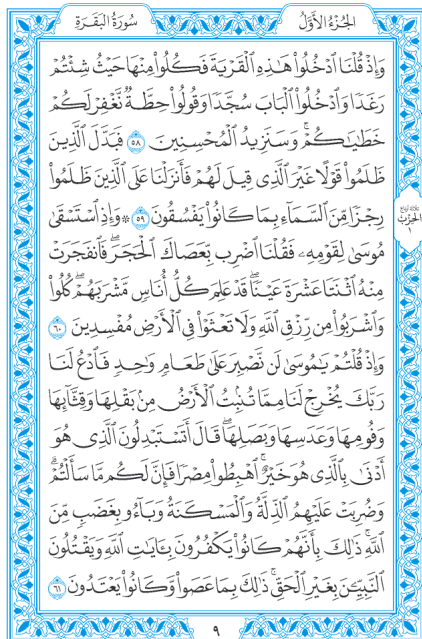 الجُزْءُ الأَوَّلُ
سُورَةُ البَقَرَةِ
وَإِذْ قُلْنَا ٱدْخُلُوا۟ هَـٰذِهِ ٱلْقَرْيَةَ فَكُلُوا۟ مِنْهَا حَيْثُ شِئْتُمْ
رَغَدًا وَٱدْخُلُوا۟ ٱلْبَابَ سُجَّدًا وَقُولُوا۟ حِطَّةٌ نَّغْفِرْ لَكُمْ
خَطَـٰيَـٰكُمْ ۚ وَسَنَزِيدُ ٱلْمُحْسِنِينَ ٥٨ فَبَدَّلَ ٱلَّذِينَ
ظَلَمُوا۟ قَوْلًا غَيْرَ ٱلَّذِى قِيلَ لَهُمْ فَأَنزَلْنَا عَلَى ٱلَّذِينَ ظَلَمُوا۟
رِجْزًا مِّنَ ٱلسَّمَآءِ بِمَا كَانُوا۟ يَفْسُقُونَ ٥٩ ۞ وَإِذِ ٱسْتَسْقَىٰ
مُوسَىٰ لِقَوْمِهِۦ فَقُلْنَا ٱضْرِب بِّعَصَاكَ ٱلْحَجَرَ ۖ فَٱنفَجَرَتْ
مِنْهُ ٱثْنَتَا عَشْرَةَ عَيْنًا ۖ قَدْ عَلِمَ كُلُّ أُنَاسٍ مَّشْرَبَهُمْ ۖ كُلُوا۟
وَٱشْرَبُوا۟ مِن رِّزْقِ ٱللَّهِ وَلَا تَعْثَوْا۟ فِى ٱلْأَرْضِ مُفْسِدِينَ ٦٠
وَإِذْ قُلْتُمْ يَـٰمُوسَىٰ لَن نَّصْبِرَ عَلَىٰ طَعَامٍ وَٰحِدٍ فَٱدْعُ لَنَا
رَبَّكَ يُخْرِجْ لَنَا مِمَّا تُنۢبِتُ ٱلْأَرْضُ مِنۢ بَقْلِهَا وَقِثَّآئِهَا
وَفُومِهَا وَعَدَسِهَا وَبَصَلِهَا ۖ قَالَ أَتَسْتَبْدِلُونَ ٱلَّذِى هُوَ
أَدْنَىٰ بِٱلَّذِى هُوَ خَيْرٌ ۚ ٱهْبِطُوا۟ مِصْرًا فَإِنَّ لَكُم مَّا سَأَلْتُمْ ۗ
وَضُرِبَتْ عَلَيْهِمُ ٱلذِّلَّةُ وَٱلْمَسْكَنَةُ وَبَآءُو بِغَضَبٍ مِّنَ
ٱللَّهِ ۗ ذَٰلِكَ بِأَنَّهُمْ كَانُوا۟ يَكْفُرُونَ بِـَٔايَـٰتِ ٱللَّهِ وَيَقْتُلُونَ
ٱلنَّبِيِّـۧنَ بِغَيْرِ ٱلْحَقِّ ۗ ذَٰلِكَ بِمَا عَصَوا۟ وَّكَانُوا۟ يَعْتَدُونَ ٦١
الحِزْبُ
٩